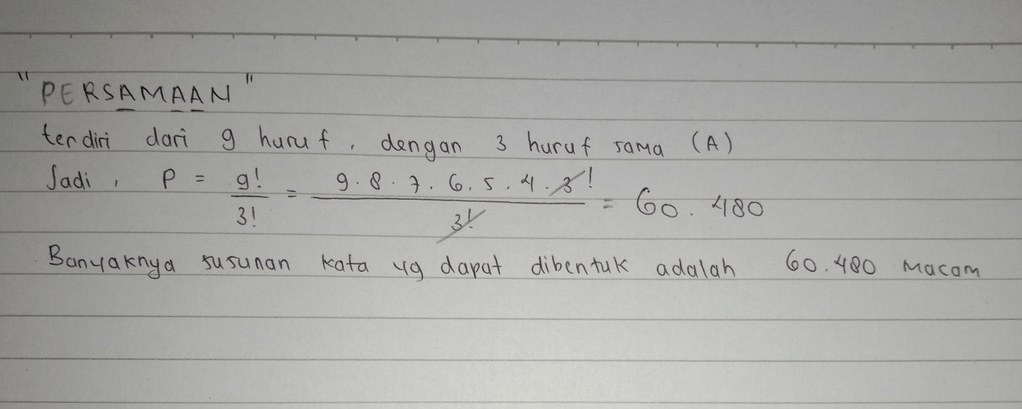 "PERSAMAAN"
terdiri dari 9 huruf, dengan 3 huruf sama (A)
Jadi, P = 9!/3! = 9.8.7.6.5.4.3!/3! = 60.480
Banyaknya susunan kata yg dapat dibentuk adalah 60.480 macam